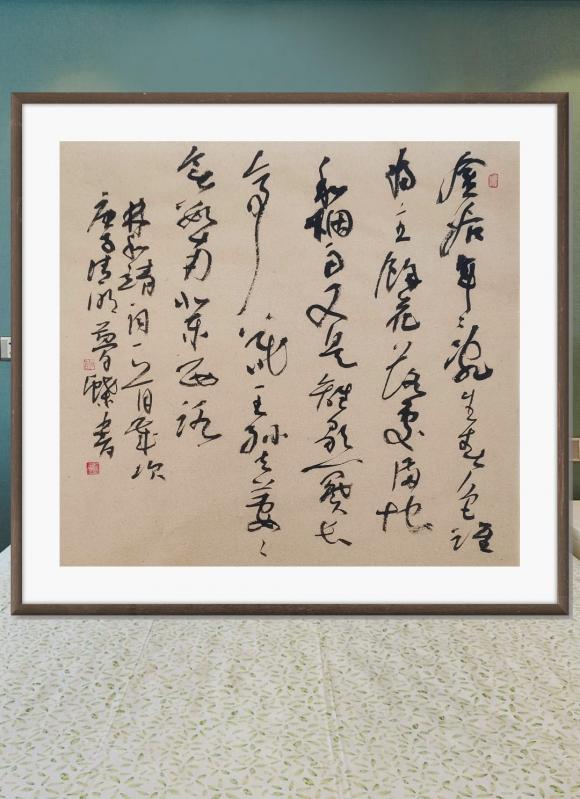 金谷年々亂生春色誰
為主餘花落處滿地
和烟雨又是離歌一闋長
亭暮王孫去萋々
無數南北東西路
林和靖詞一首歲次
庚子清明夢蝶書